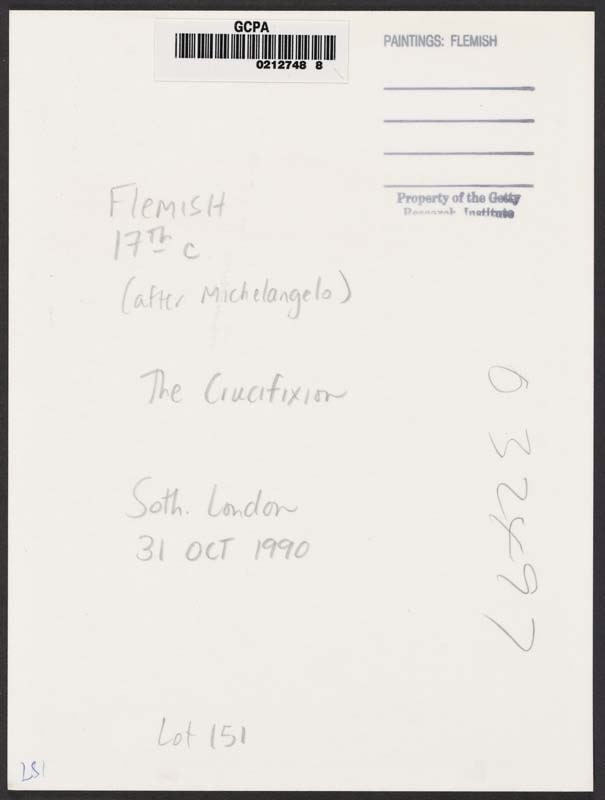 GCPA
0212748 8
PAINTINGS: FLEMISH
Property of the Getty
Research Institute
FLEMISH
17th c
(after Michelangelo)
The Crucifixion
Soth. London
31 OCT 1990
Lot 151
151
632497